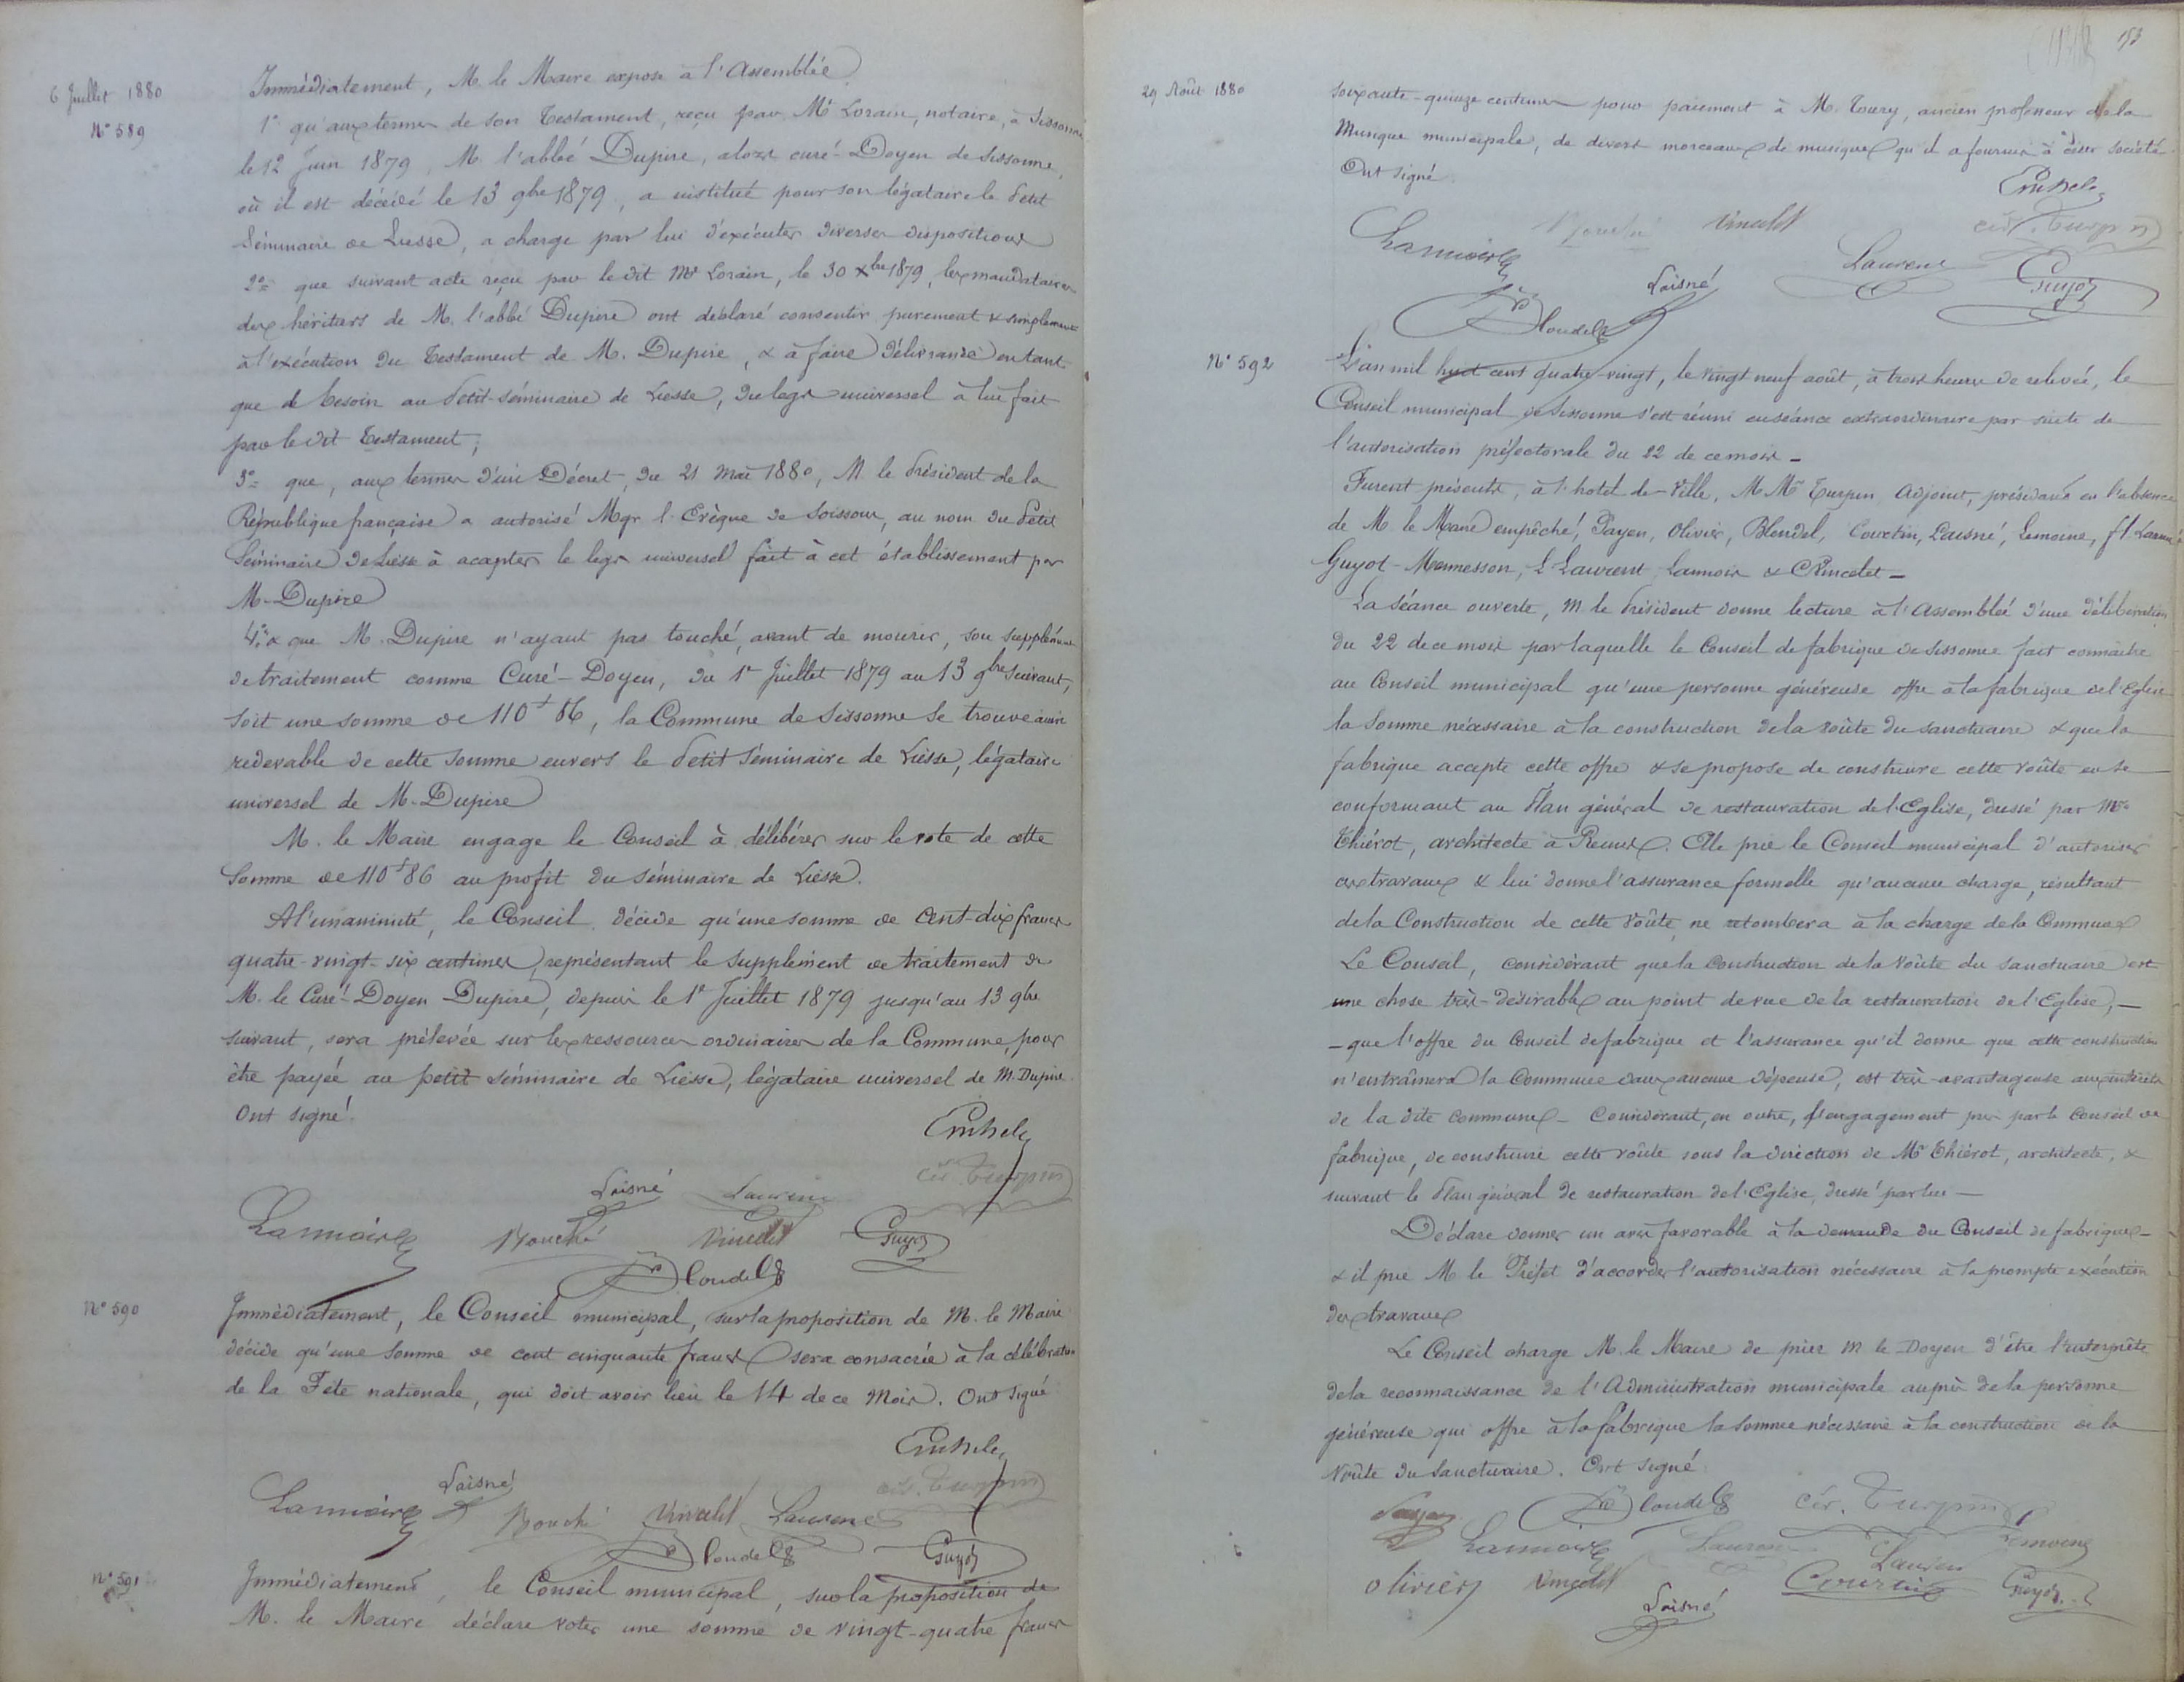 6 Juillet 1880
N° 589
Immédiatement, M. le Maire expose à l'Assemblée
1° qu'aux termes de son Testament, reçu par Me Lorain, notaire, à Sissonne
le 12 Juin 1879, M. l'abbé Dupire, alors curé-Doyen de Sissonne,
où il est décédé le 13 9bre 1879, a institué pour son légataire le Petit
Séminaire de Liesse, a charge par lui d'exécuter diverses dispositions
2° que suivant acte reçu par le dit Me Lorain, le 30 Xbre 1879, les mandataires
des héritiers de M. l'abbé Dupire ont déclaré consentir purement & simplement
à l'exécution du Testament de M. Dupire, & à faire délivrance en tant
que de besoin au Petit-séminaire de Liesse, du legs universel à lui fait
par le dit Testament;
3° que, aux termes d'un Décret, du 21 mai 1880, M. le Président de la
République française a autorisé Mgr l'Evêque de Soissons, au nom du Petit
Séminaire de Liesse à accepter le legs universel fait à cet établissement par
M. Dupire
4° & que M. Dupire n'ayant pas touché, avant de mourir, son supplément
de traitement comme Curé-Doyen, du 1er Juillet 1879 au 13 9bre suivant,
soit une somme de 110f 86, la Commune de Sissonne se trouve ainsi
redevable de cette somme envers le Petit Séminaire de Liesse, légataire
universel de M. Dupire
M. le Maire engage le Conseil à délibérer sur le vote de cette
somme de 110f 86 au profit du Séminaire de Liesse.
A l'unanimité, le Conseil décide qu'une somme de Cent-dix francs
quatre-vingt-six centimes, représentant le supplément de traitement de
M. le Curé-Doyen Dupire, depuis le 1er Juillet 1879 jusqu'au 13 9bre
suivant, sera prélevée sur les ressources ordinaires de la Commune, pour
être payée au petit séminaire de Liesse, légataire universel de M. Dupire
Ont signé.
cér. Turpin
Laisné Laurent
Lannois Bouché Vincelet Guyot
Blondel
N° 590
Immédiatement, le Conseil municipal, sur la proposition de M. le Maire
décide qu'une somme de cent cinquante francs sera consacrée à la célébration
de la Fête nationale, qui doit avoir lieu le 14 de ce Mois. Ont signé
cér. Turpin
Laisné
Lannois Bouché Laurent
Blondel Guyot
N° 591
Immédiatement, le Conseil municipal, sur la proposition de
M. le Maire déclare voter une somme de vingt-quatre francs
153
29 Août 1880
soixante-quinze centimes pour paiement à M. Toury, ancien professeur de la
Musique municipale, de divers morceaux de musique qu'il a fournis à cette société
Ont signé
cér. Turpin
Lannois Bouché Vincelet
Laurent
Laisné Guyot
Blondel
N° 592
L'an mil huit cent quatre-vingt, le vingt neuf août, à trois heures de relevée, le
Conseil municipal de Sissonne s'est réuni en séance extraordinaire par suite de
l'autorisation préfectorale du 22 de ce mois -
Furent présents, à l'hotel de-Ville, M Mrs Turpin, Adjoint, présidant en l'absence
de M. le Maire empêché, Payen, Olivier, Blondel, Courtin, Laisné, Lemoine, Laurent
Guyot-Mennesson, L. Laurent Lannois & Vincelet -
La Séance ouverte, M. le Président donne lecture à l'Assemblée d'une délibération
du 22 de ce mois par laquelle le Conseil de fabrique de Sissonne fait connaitre
au Conseil municipal qu'une personne généreuse offre à la fabrique de l'Eglise
la Somme nécessaire à la construction de la voûte du sanctuaire & que la
fabrique accepte cette offre & se propose de construire cette voûte en se
conformant au Plan général de restauration de l'Eglise, dressé par Mr
Thiérot, architecte à Reims. Elle prie le Conseil municipal d'autoriser
ces travaux & lui donne l'assurance formelle qu'aucune charge, résultant
de la Construction de cette voûte, ne retombera à la charge de la Commune
Le Conseil, considérant que la Construction de la voûte du sanctuaire est
une chose très-désirable au point de vue de la restauration de l'Eglise, -
- que l'offre du Conseil de fabrique et l'assurance qu'il donne que cette construction
n'entraînera la Commune dans aucune dépense, est très-avantageuse aux intérêts
de la dite commune - Considérant, en outre, l'engagement pris par le Conseil de
fabrique, de construire cette voûte sous la direction de Mr Thiérot, architecte, &
suivant le Plan général de restauration de l'Eglise, dressé par lui -
Déclare donner un avis favorable à la demande du Conseil de fabrique -
& il prie M. le Préfet d'accorder l'autorisation nécessaire à la prompte exécution
des travaux
Le Conseil charge M. le Maire de prier M le Doyen d'être l'interprète
de la reconnaissance de l'Administration municipale auprès de la personne
généreuse qui offre à la fabrique la Somme nécessaire à la construction de la
voûte du Sanctuaire. Ont signé
Payen Blondel cér. Turpin
Lannois Laurent Lemoine
Laurent
Olivier Vincelet Courtin Guyot
Laisné